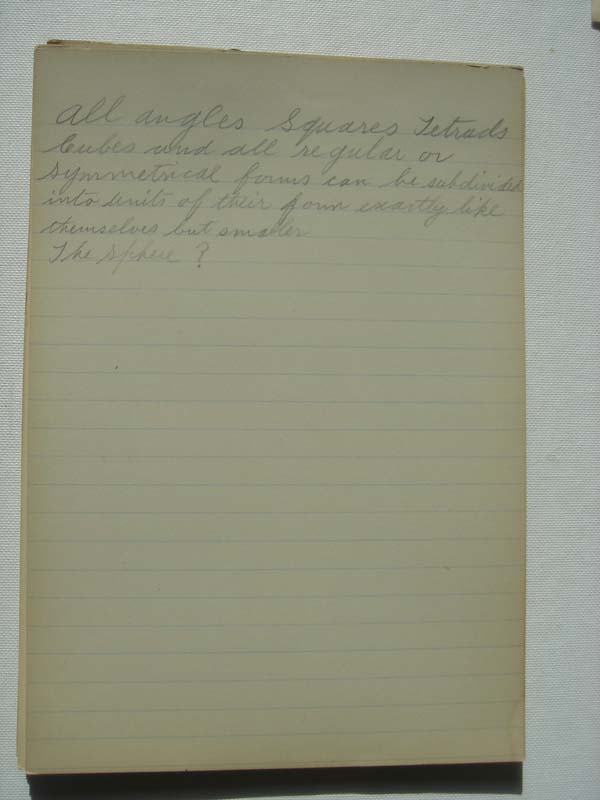 All angles Squares Tetrads
Cubes and all regular or
Symmetrical forms can be subdivided
into Units of their form exactly like
themselves but smaller
The Sphere ?